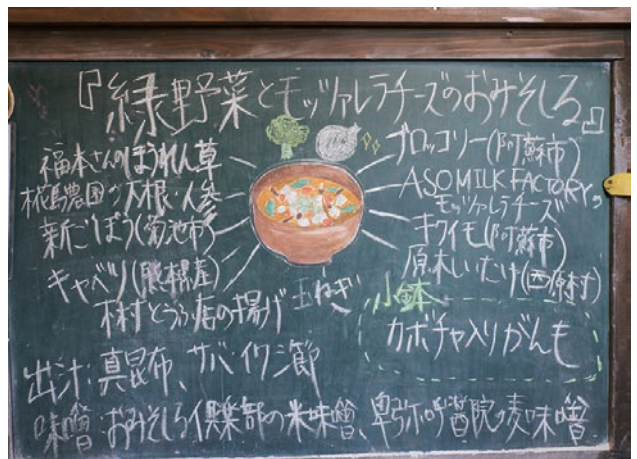 『緑野菜とモッツァレラチーズのおみそしる』
福本さんのほうれん草
椛島農園の大根・人参
新ごぼう(菊池市)
キャベツ(熊本県産)
木村とうふ店の揚げ
玉ねぎ
ブロッコリー(阿蘇市)
ASO MILK FACTORYの
モッツァレラチーズ
キクイモ(阿蘇市)
原木しいたけ(西原村)
小鉢
カボチャ入りがんも
出汁:真昆布、サバ・イワシ節
味噌:おみそしる倶楽部の米味噌、卑弥呼醤院の麦味噌